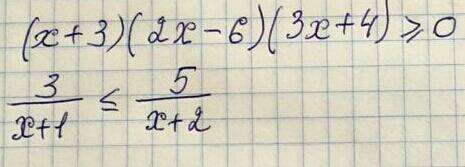 (x+3)(2x-6)(3x+4) ⩾ 0
3/(x+1) ≤ 5/(x+2)